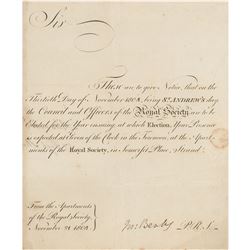 Sir
These are to give Notice, that on the
Thirtieth Day of November 1808, being St. ANDREW's day
the Council and Officers of the Royal Society are to be
Elected for the Year ensuing at which Election, Your Presence
is expected at Eleven of the Clock in the Forenoon, at the Apart-
ments of the Royal Society, in Somerset Place, Strand.
From the Apartments
of the Royal Society,
November 21 1808
Jos: Banks P.R.S.